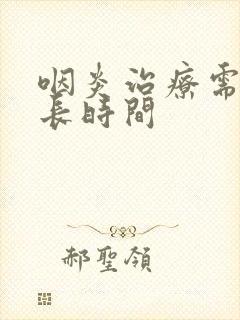 咽炎治療需
長時間
郝聖領